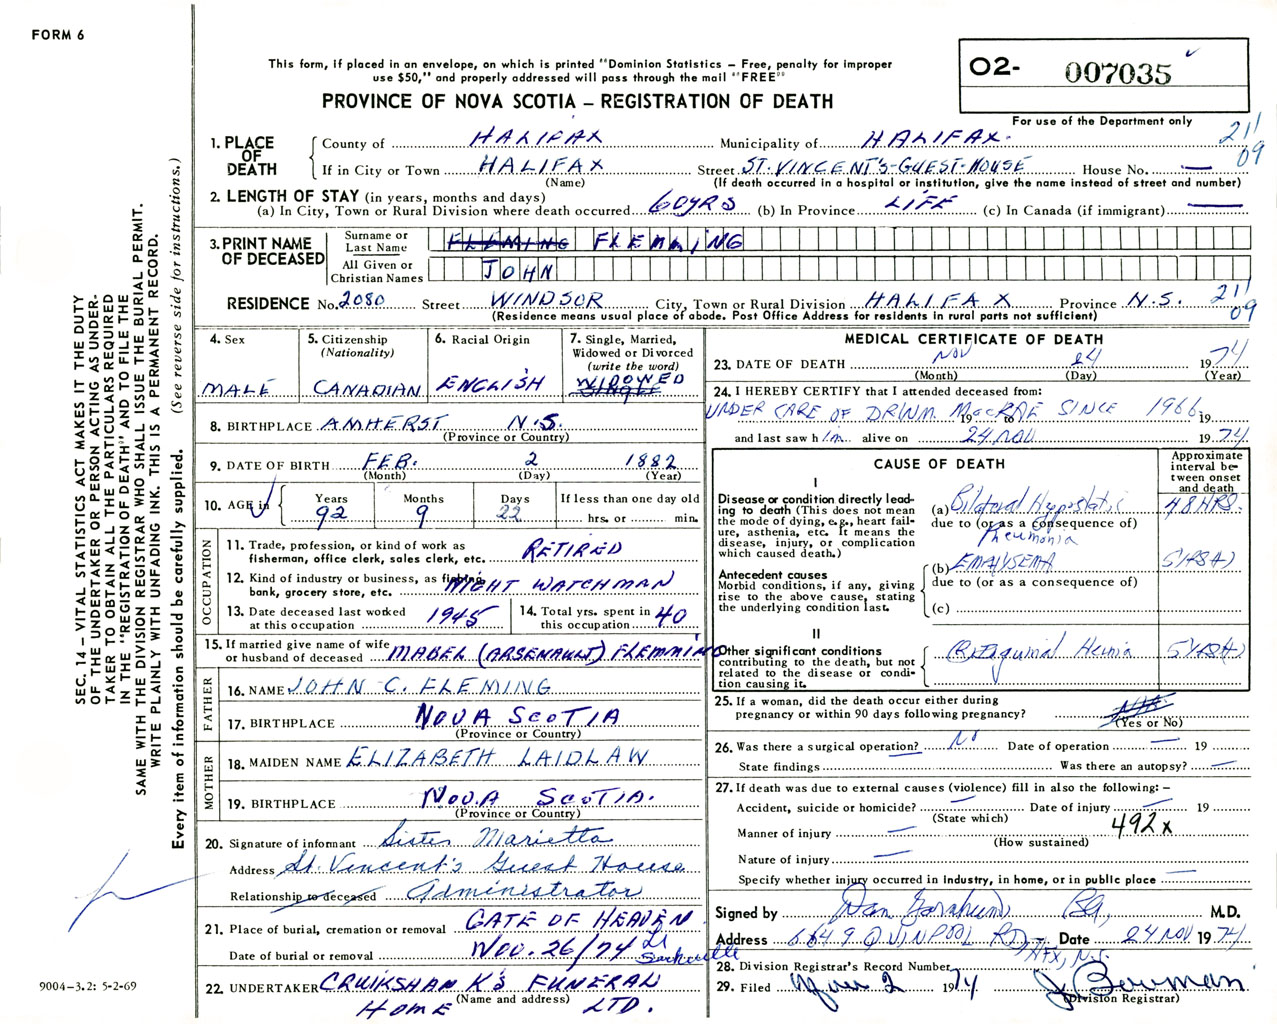 FORM 6
This form, if placed in an envelope, on which is printed "Dominion Statistics – Free, penalty for improper
use $50," and properly addressed will pass through the mail "FREE"
PROVINCE OF NOVA SCOTIA – REGISTRATION OF DEATH
02- 007035
For use of the Department only
1. PLACE OF DEATH County of HALIFAX Municipality of HALIFAX. 211
If in City or Town HALIFAX Street ST. VINCENT'S-GUEST-HOUSE House No. — 09
(Name) (If death occurred in a hospital or institution, give the name instead of street and number)
2. LENGTH OF STAY (in years, months and days)
(a) In City, Town or Rural Division where death occurred 60YRS (b) In Province LIFE (c) In Canada (if immigrant) —
3. PRINT NAME OF DECEASED Surname or Last Name FLEMING FLEMMING
All Given or Christian Names JOHN
RESIDENCE No. 2080 Street WINDSOR City, Town or Rural Division HALIFAX Province N.S. 211 09
(Residence means usual place of abode. Post Office Address for residents in rural parts not sufficient)
4. Sex MALE
5. Citizenship (Nationality) CANADIAN
6. Racial Origin ENGLISH
7. Single, Married, Widowed or Divorced (write the word) WIDOWED SINGLE
8. BIRTHPLACE AMHERST N.S.
(Province or Country)
9. DATE OF BIRTH FEB. 2 1882
(Month) (Day) (Year)
10. AGE in Years 92 Months 9 Days 22 If less than one day old hrs. or min.
OCCUPATION
11. Trade, profession, or kind of work as fisherman, office clerk, sales clerk, etc. RETIRED
12. Kind of industry or business, as fishing, bank, grocery store, etc. NIGHT WATCHMAN
13. Date deceased last worked at this occupation 1945
14. Total yrs. spent in this occupation 40
15. If married give name of wife or husband of deceased MABEL (ARSENAULT) FLEMMING
FATHER
16. NAME JOHN C. FLEMING
17. BIRTHPLACE NOVA SCOTIA
(Province or Country)
MOTHER
18. MAIDEN NAME ELIZABETH LAIDLAW
19. BIRTHPLACE NOVA SCOTIA.
(Province or Country)
20. Signature of informant Sister Marietta
Address St. Vincent's Guest House
Relationship to deceased Administrator
21. Place of burial, cremation or removal GATE OF HEAVEN
Date of burial or removal NOV. 26/74 Sackville
22. UNDERTAKER CRUIKSHANK'S FUNERAL
(Name and address)
HOME LTD.
MEDICAL CERTIFICATE OF DEATH
23. DATE OF DEATH NOV 24 1974
(Month) (Day) (Year)
24. I HEREBY CERTIFY that I attended deceased from:
UNDER CARE OF DR WM. MacCRAE SINCE 1966 19 19
and last saw him alive on 24 NOV 1974
CAUSE OF DEATH
Approximate interval between onset and death
I
Disease or condition directly leading to death (This does not mean the mode of dying, e.g., heart failure, asthenia, etc. It means the disease, injury, or complication which caused death.)
(a) Bilateral Hypostatic Pneumonia 48 HRS.
due to (or as a consequence of)
Antecedent causes
Morbid conditions, if any, giving rise to the above cause, stating the underlying condition last.
(b) EMPHYSEMA
due to (or as a consequence of)
(c)
II
Other significant conditions
contributing to the death, but not related to the disease or condition causing it.
Hernia
25. If a woman, did the death occur either during pregnancy or within 90 days following pregnancy?
(Yes or No)
26. Was there a surgical operation? No Date of operation — 19
State findings Was there an autopsy? —
27. If death was due to external causes (violence) fill in also the following: –
Accident, suicide or homicide? — Date of injury — 19
(State which)
Manner of injury — 492x
(How sustained)
Nature of injury —
Specify whether injury occurred in industry, in home, or in public place —
Signed by Dan M.D.
Address 6649 QUINPOOL RD, HFX, N.S. Date 24 NOV 1974
28. Division Registrar's Record Number
29. Filed 2 1974 J. Bowman
(Division Registrar)
SEC. 14 – VITAL STATISTICS ACT MAKES IT THE DUTY
OF THE UNDERTAKER OR PERSON ACTING AS UNDER-
TAKER TO OBTAIN ALL THE PARTICULARS REQUIRED
IN THE "REGISTRATION OF DEATH" AND TO FILE THE
SAME WITH THE DIVISION REGISTRAR WHO SHALL ISSUE THE BURIAL PERMIT.
WRITE PLAINLY WITH UNFADING INK. THIS IS A PERMANENT RECORD.
Every item of information should be carefully supplied. (See reverse side for instructions.)
9004-3.2: 5-2-69